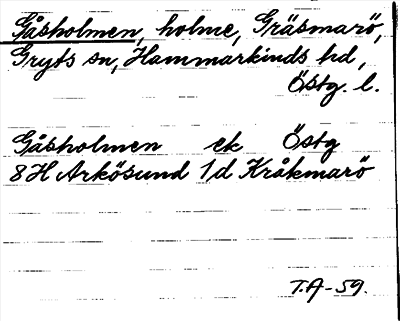 Gåsholmen, holme, Gräsmarö,
Gryts sn, Hammarkinds hd,
Östg. l.
Gåsholmen ek Östg
8H Arkösund 1d Kråkmarö
T.A-59.